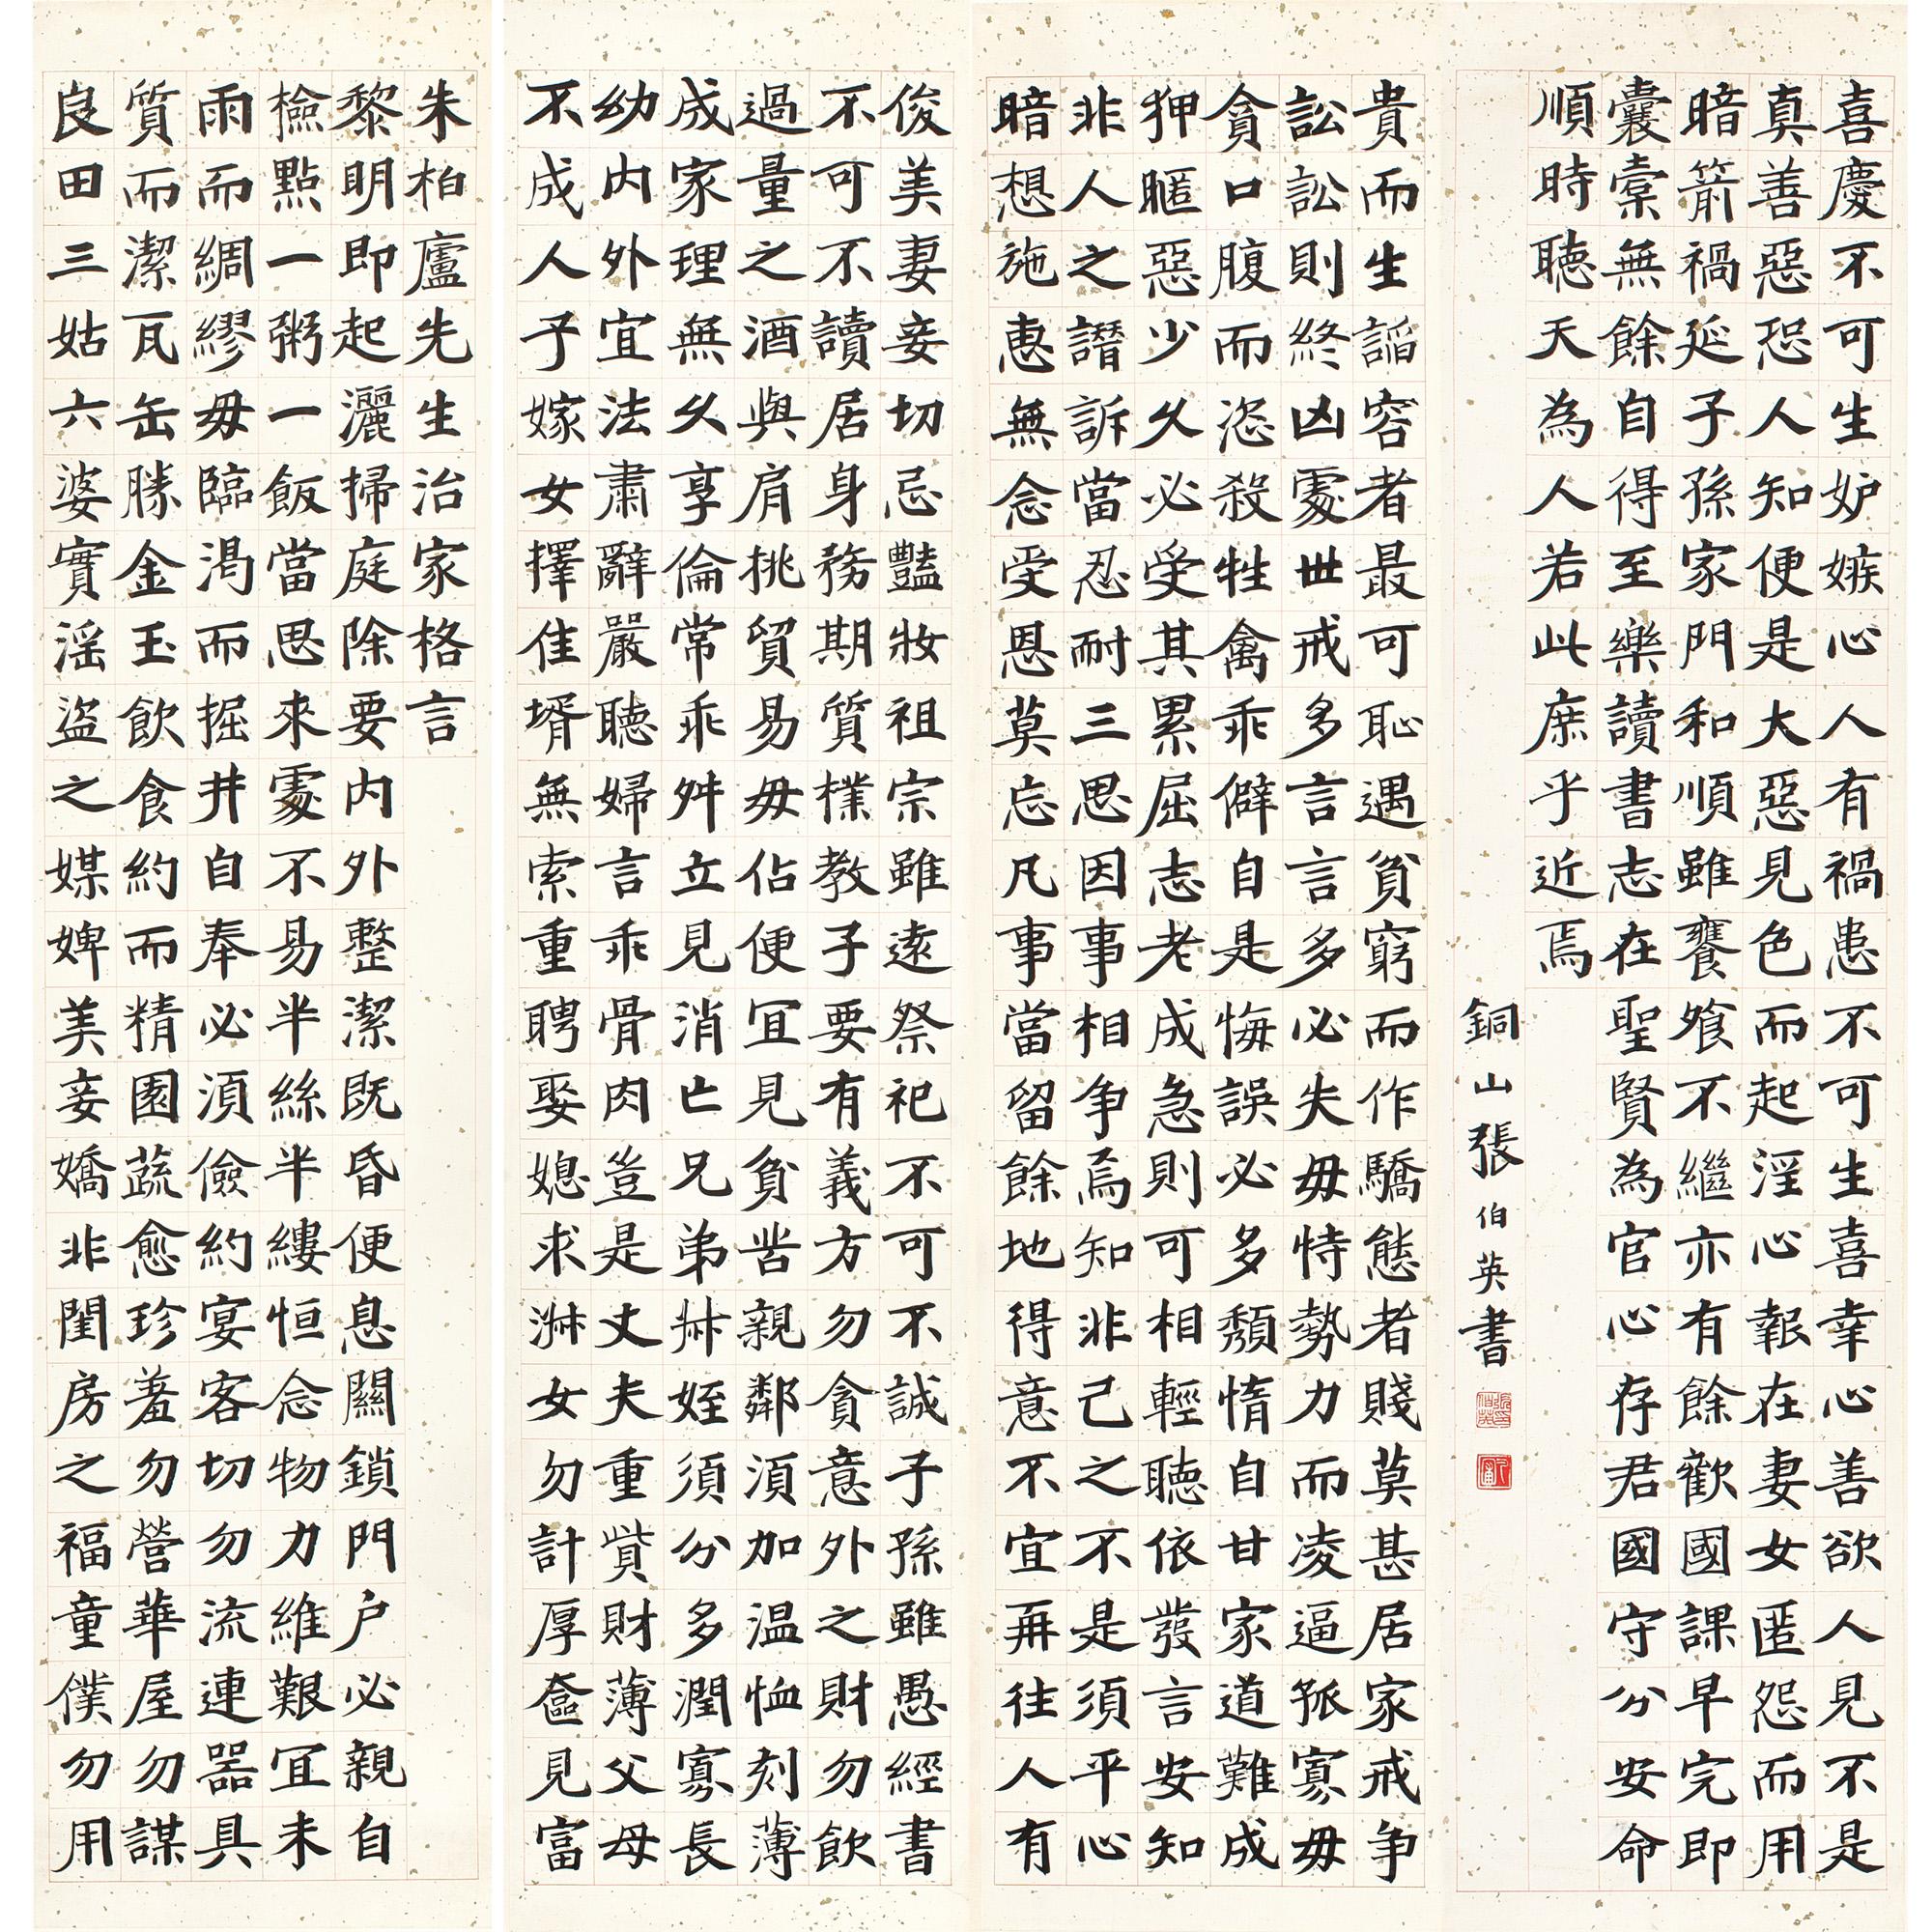 朱柏廬先生治家格言
黎明即起灑掃庭除要内外整潔既昏便息關鎖門户必親自
檢點一粥一飯當思來處不易半絲半縷恒念物力維艱宜未
雨而綢繆毋臨渴而掘井自奉必須儉約宴客切勿流連器具
質而潔瓦缶勝金玉飲食約而精園蔬愈珍羞勿營華屋勿謀
良田三姑六婆實淫盜之媒婢美妾嬌非閨房之福童僕勿用
俊美妻妾切忌豔妝祖宗雖遠祭祀不可不誠子孫雖愚經書
不可不讀居身務期質樸教子要有義方勿貪意外之財勿飲
過量之酒與肩挑貿易毋佔便宜見貧苦親鄰須加温恤刻薄
成家理無久享倫常乖舛立見消亡兄弟叔姪須分多潤寡長
幼内外宜法肅辭嚴聽婦言乖骨肉豈是丈夫重貲財薄父母
不成人子嫁女擇佳壻無索重聘娶媳求淑女勿計厚奩見富
貴而生諂容者最可恥遇貧窮而作驕態者賤莫甚居家戒爭
訟訟則終凶處世戒多言言多必失毋恃勢力而凌逼孤寡毋
貪口腹而恣殺牲禽乖僻自是悔誤必多頹惰自甘家道難成
狎暱惡少久必受其累屈志老成急則可相輕聽依發言安知
非人之譖訴當忍耐三思因事相爭焉知非己之不是須平心
暗想施惠無念受恩莫忘凡事當留餘地得意不宜再往人有
喜慶不可生妒嫉心人有禍患不可生喜幸心善欲人見不是
真善惡恐人知便是大惡見色而起淫心報在妻女匿怨而用
暗箭禍延子孫家門和順雖饔飧不繼亦有餘歡國課早完即
囊橐無餘自得至樂讀書志在聖賢為官心存君國守分安命
順時聽天為人若此庶乎近焉
銅山張伯英書
張印伯英
勺圃